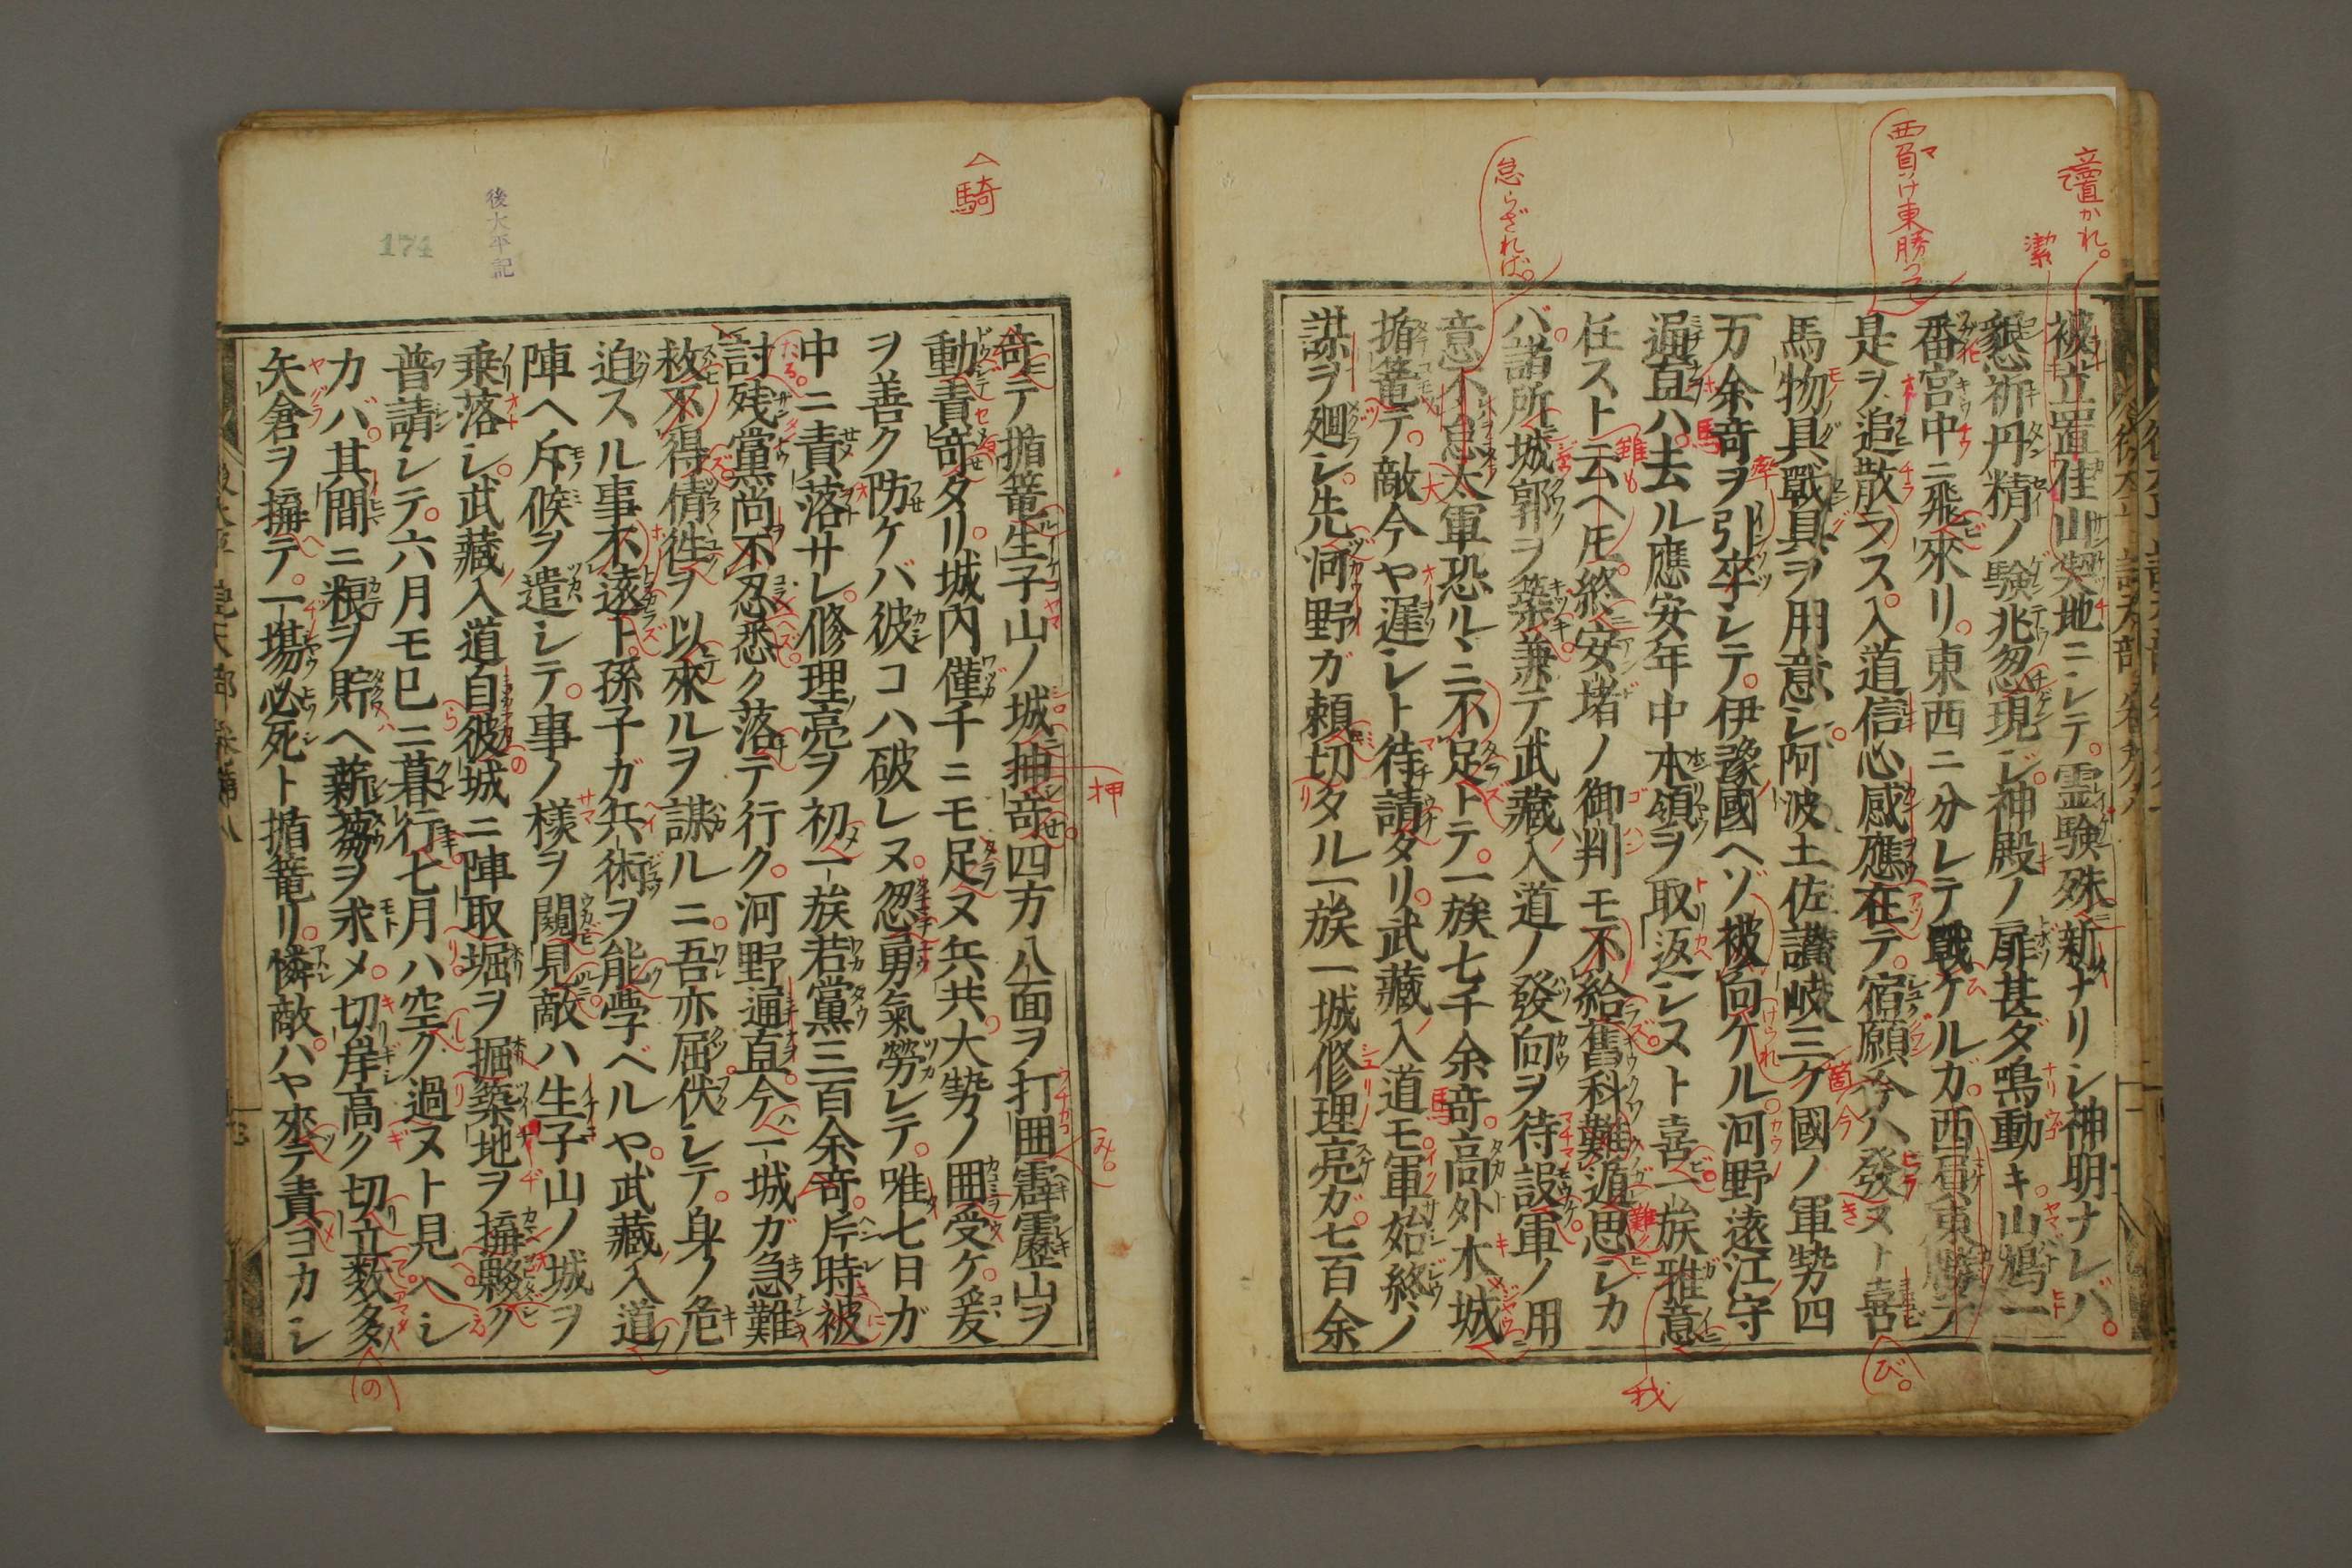 立置かれ。
潔
西負け東勝つて
怠らざれば。
被立置佳山勝地ニシテ。霊験殊新ナリシ神明ナレバ。
懇祈丹精ノ験兆忽現ジ。神殿ノ扉甚ダ鳴動キ。山鳩一
番宮中ニ飛來リ。東西ニ分レテ戰ケルガ。西負東勝テ
是ヲ追散ラス。入道信心感應在テ。宿願今ハ發ヌト喜
馬物具戰具ヲ用意シ。阿波土佐讃岐三ケ國ノ軍勢四
万余竒ヲ引卒シテ。伊豫國ヘゾ被向ケル。河野遠江守
逼直ハ。去ル應安年中本領ヲ取返シヌト喜。一族雅意
任スト云ヘ𪜈。終安堵ノ御判モ不給。舊科難遁思シカ
バ。諸所城郭ヲ築。兼テ武藏入道ノ發向ヲ待設。軍ノ用
意不怠。太軍恐ルヽニ不足トテ。一族七千余竒。高外木城
揗篭テ。敵今ヤ遲シト待請タリ。武藏入道モ軍始終ノ
謀ヲ廻シ。先河野ガ頼切タル一族一城修理亮ガ。七百余
我
び。
騎
後太平記
174
竒テ揗篭生子山ノ城押竒。四方八面ヲ打囲。霹靂山ヲ
動責竒タリ。城内僅千ニモ足ヌ兵共。大勢ノ囲受ケ。爰
ヲ善ク防ケバ彼コハ破レヌ。忽勇氣勞レテ。唯七日ガ
中ニ責落サレ。修理亮ヲ初一族若黨三百余竒。片時被
討。残黨尚不忍悉ク落テ行ク。河野逼直。今一城ガ急難
救不得。倩徃ヲ以來ルヲ謀ルニ。吾亦屈伏シテ。身ノ危
迫スル事不遠ト。孫子ガ兵術ヲ能學ベルヤ。武藏入道
陣ヘ斥候ヲ遣シテ。事ノ様ヲ闚見。敵ハ生子山ノ城ヲ
乗落シ。武藏入道自彼城ニ陣取。堀ヲ掘築地ヲ搆夥ク
普請シテ。六月モ已ニ暮行。七月ハ空ク過ヌト見ヘシ
カバ。其間ニ粮ヲ貯ヘ薪蒭ヲ求メ。切岸高ク切立数多
矢倉ヲ搆テ。一塲必死ト揗篭リ。憐敵ハヤ來テ責ヨカシ
押
み。
(の)